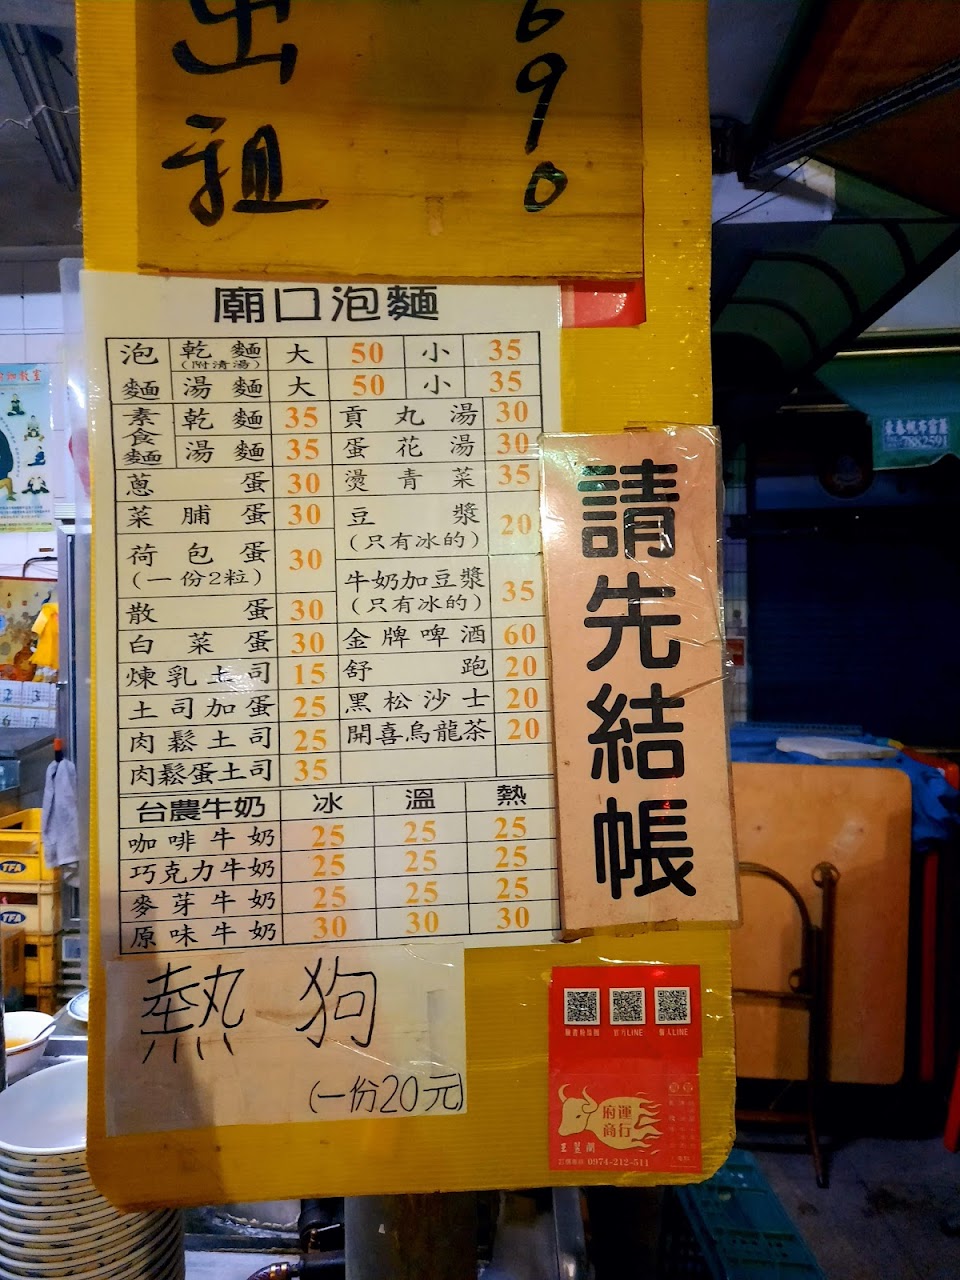 出租
690
廟口泡麵
泡麵 乾麵(附清湯) 大 50 小 35
湯麵 大 50 小 35
素食麵 乾麵 35
湯麵 35
蔥蛋 30
菜脯蛋 30
荷包蛋(一份2粒) 30
散蛋 30
白菜蛋 30
煉乳土司 15
土司加蛋 25
肉鬆土司 25
肉鬆蛋土司 35
貢丸湯 30
蛋花湯 30
燙青菜 35
豆漿(只有冰的) 20
牛奶加豆漿(只有冰的) 35
金牌啤酒 60
舒跑 20
黑松沙士 20
開喜烏龍茶 20
台農牛奶 冰 溫 熱
咖啡牛奶 25 25 25
巧克力牛奶 25 25 25
麥芽牛奶 25 25 25
原味牛奶 30 30 30
熱狗
(一份20元)
請先結帳
官方LINE
個人LINE
府運商行
0974-212-511
7882591
TFA
TFA